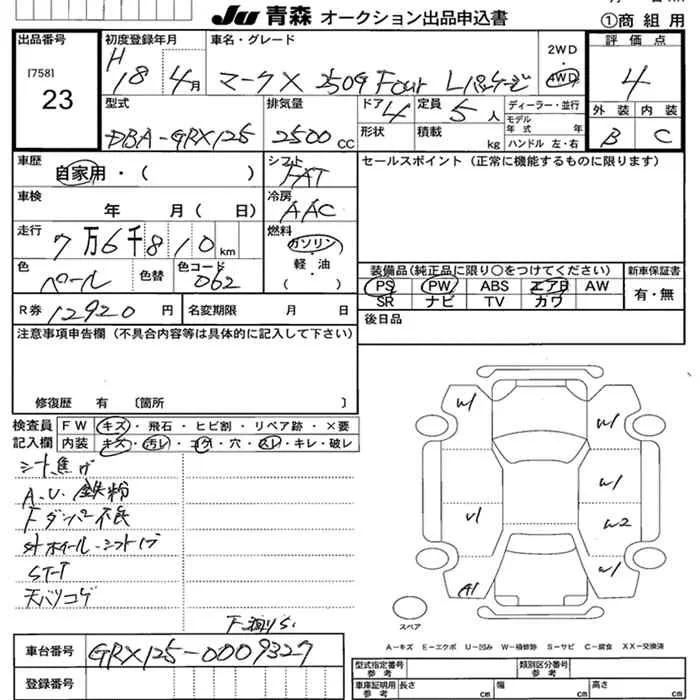 JU 青森 オークション出品申込書
①商 組 用
出品番号
[758]
23
初度登録年月
H
18 4月
車名・グレード
マークX 250G Four Lパッケージ
2WD
・
4WD
評 価 点
4
外 装 内 装
B C
型式
DBA-GRX125
排気量
2500 CC
ドア 4
定員 5 人
形状
積載 kg
ディーラー・並行
モデル
年 式 年
ハンドル 左・右
車歴
自家用・( )
シフト
FAT
セールスポイント (正常に機能するものに限ります)
車検
年 月( 日)
冷房
AAC
走行
7万6千810 km
燃料
ガソリン
軽・油
( )
色
パール
色替
色コード
062
装備品(純正品に限り〇をつけてください)
PS PW ABS エアB AW
SR ナビ TV カワ
新車保証書
有・無
R券 12920 円
名変期限 月 日
後日品
注意事項申告欄 (不具合内容等は具体的に記入して下さい)
修復歴 有 〔箇所 〕
検査員
記入欄
FW キズ・飛石・ヒビ割・リペア跡・×要
内装 キズ・汚レ・コゲ・穴・スレ・キレ・破レ
シート焦げ
A.U. 鉄粉
Fダンパー不良
ST-T
天バリコゲ
W1
W1
W1
V1
W2
A1
W1
スペア
A-キズ E-エクボ U-凹み W-補修跡 S-サビ C-腐食 XX-交換済
車台番号
GRX125-0009327
登録番号
型式指定番号
参 考
類別区分番号
参 考
車庫証明用
参 考
長さ cm
幅 cm
高さ cm